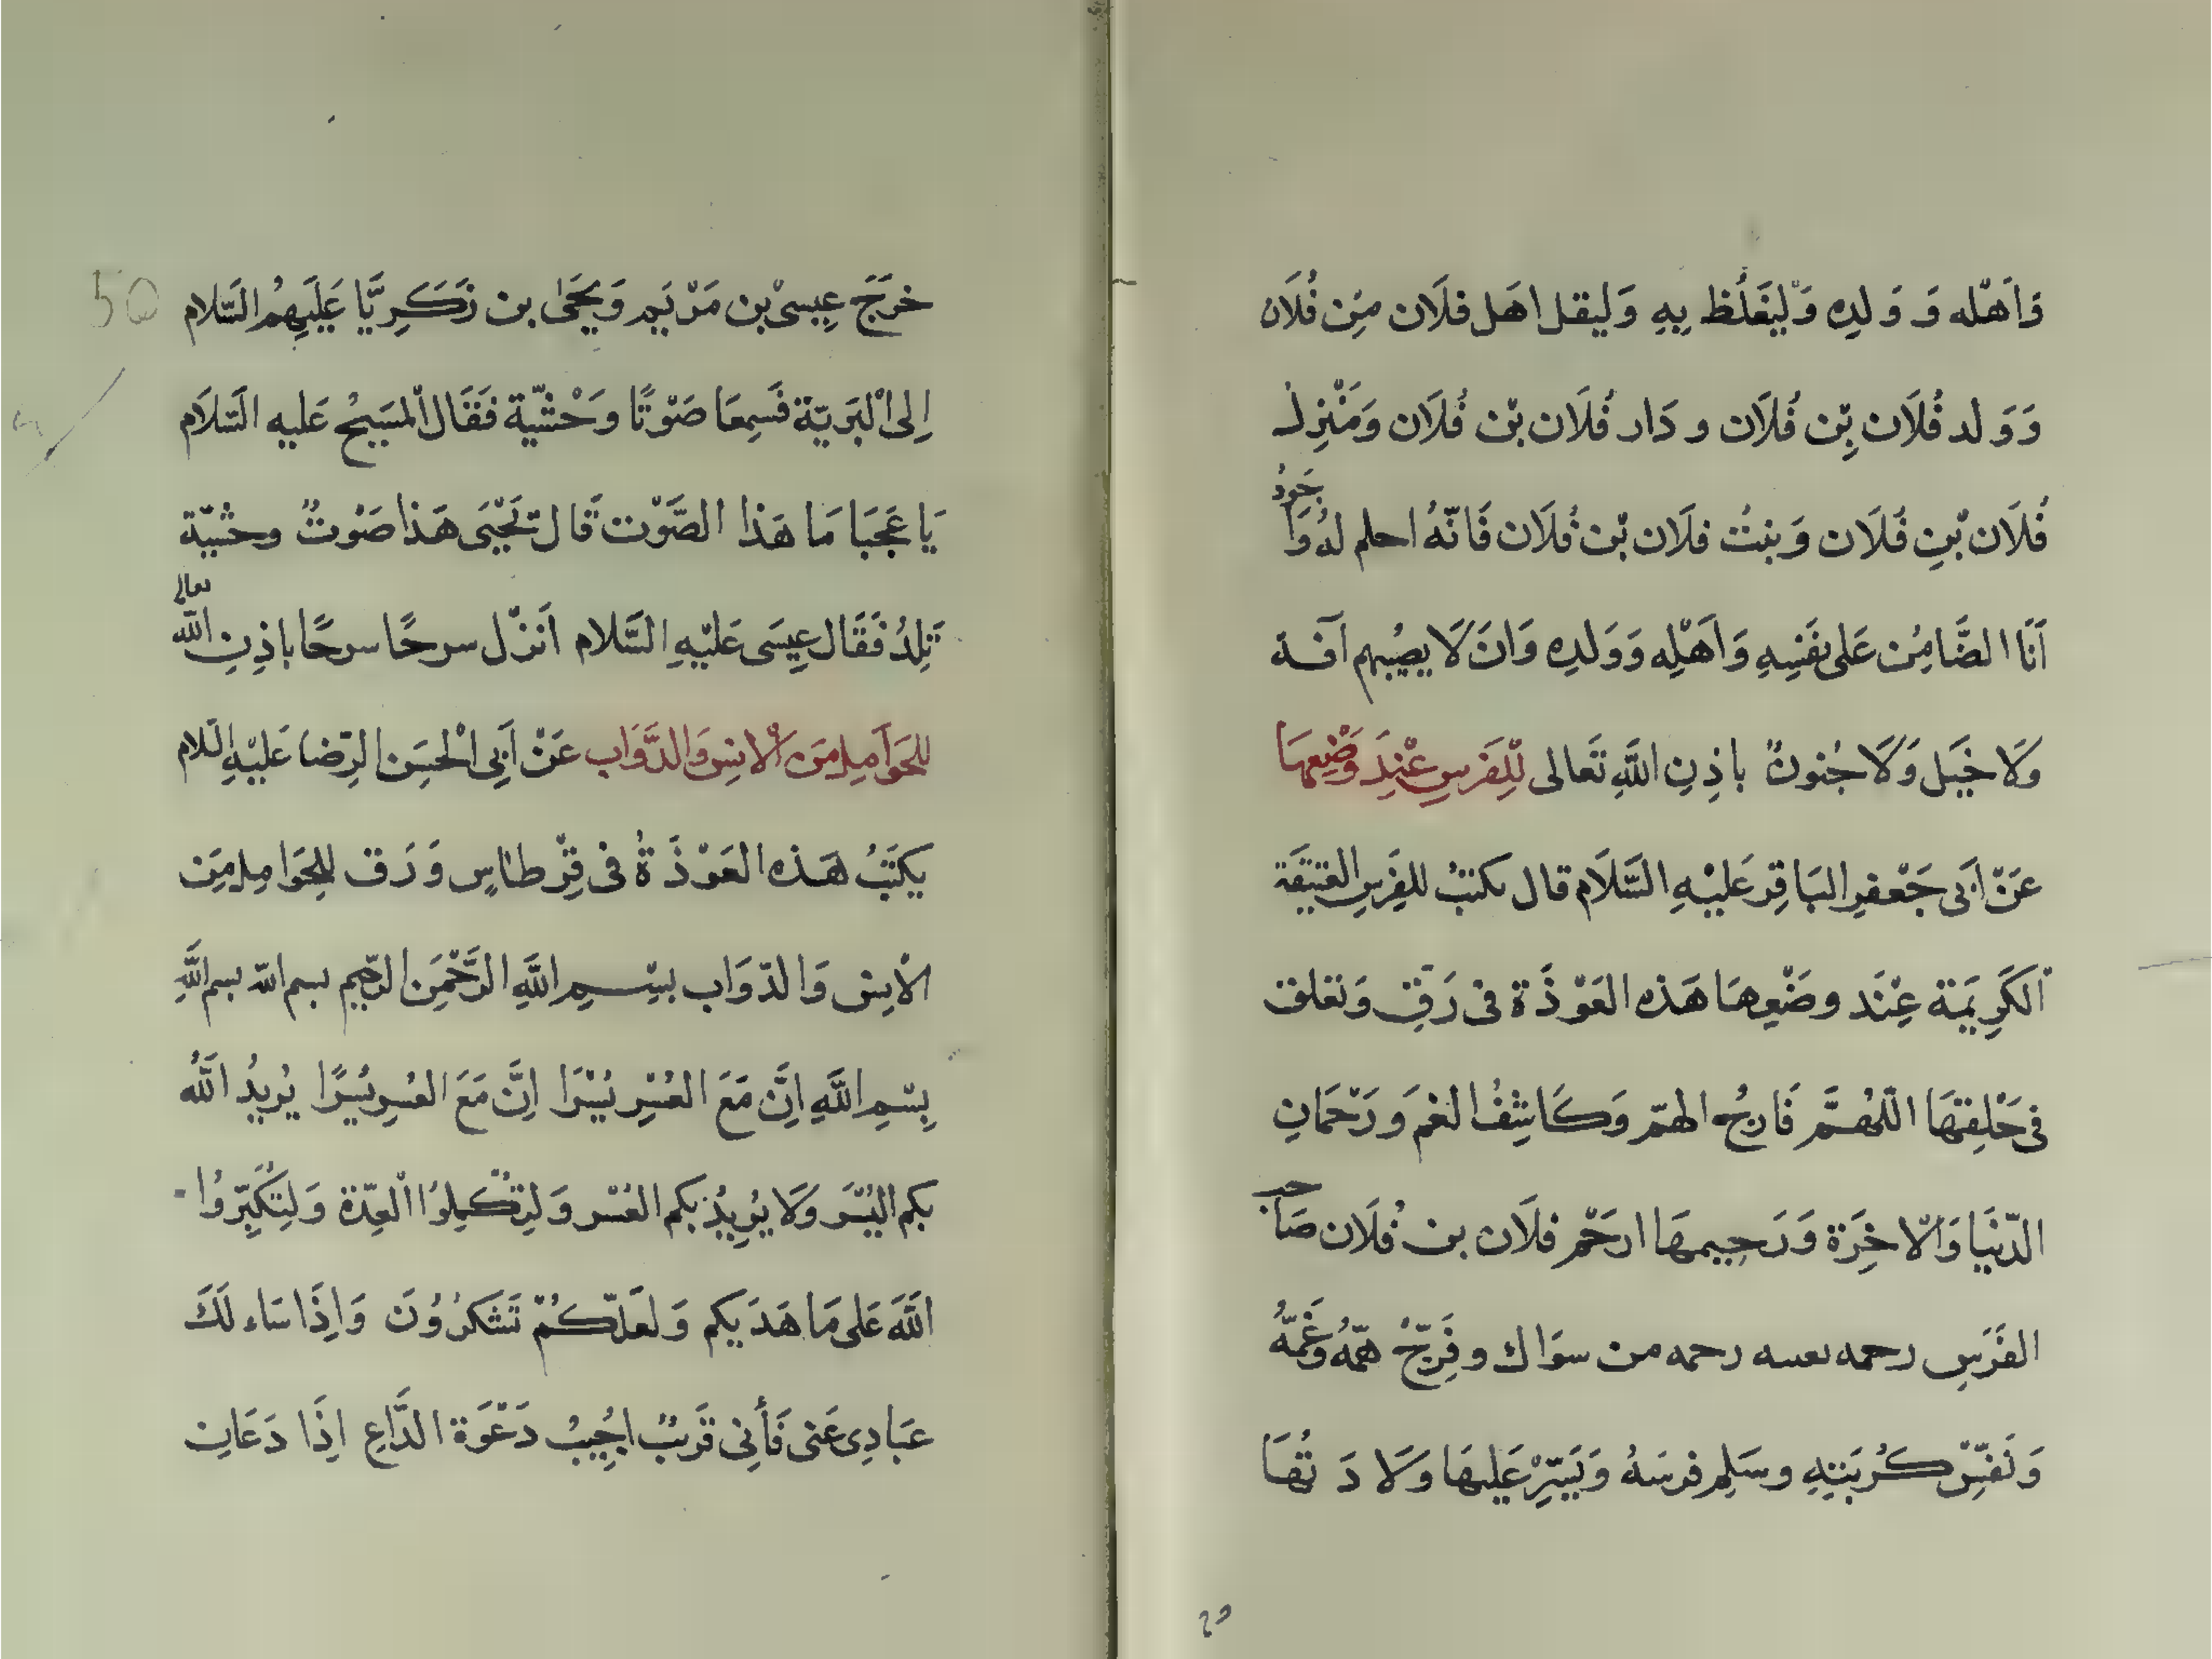 وَاَهْله وَ وَلدِه وَلْيَغلُظ بِهِ وَليقل اهَل فلَان مِن فُلَان
وَوَلد فُلَان بِّن فُلَان و دَار فُلَان بّن فُلَان وَمَنْزِل
فُلَان بْنِ فُلَان وَبنتُ فلَان بّن فُلَان فَانّهُ احلم لهُ وَاَجَودُ
اَنَا الضَّامِن عَلى نَفسِهِ وَاَهْلِه وَوَلدِه وَانَ لَا يصُيبهم آفة
وَلَا خَبَل وَلَا جُنونٌ باذِنِ اللّهِ تَعالى لِلْفَرسِ عْندَ وَضْعِهَا
عَنْ اَبى جَعْفرِ البَاقِرِ عَليْهِ السَّلَام قال يكتبُ للفَرسِ العَتيقَة
اَلكَرِيمَة عِنْدَ وضَعْهِا هَذه العَوْذَة فى رَقٍ وَتعلق
فى حَلقِهَا اللّهُمَّ فَارجُ الهمّ وَكَاشِفُ الغمَ ورَحْمَانِ
الدّنيَا وَالْاخرَة وَرَحِيمهَا ارحَمْ فلَان بن فُلَان صَاحب
الفَرَسِ رحمه تغنيه رحمه من سوَاك وفَرِجّ همّهُ وغَمّهُ
وَنَفّسْ كُربَتهِ وسَلِم فرسَهُ وَيَسّرِ عَليهَا وَلَا دَتُهَا
٢٥
50
خرَجَ عِيسىْ بن مَرْيَم وَيَحَيىٰ بن زَكَرِيَّا عَلَيهِمُ السَّلام
اِلى الْبَرَيّة فَسِمعَا صَوْتًا وحْشيّة فَقَال الْمسَيحُ عَليه السَّلَام
يَا عَجَبَا مَا هَذا الصَّوْت قَال يَحْيىَ هَذا صَوْتٌ وحشيّة
تَلِدُ فَقَال عِيسَى عَليْهِ السَّلام اَنزْل سرحًا سرحًا باذِنِ اللّه تعالى
للحَوَامِل مَن الْانسِ وَالدَّوَاب عَنْ اَبِى الْحسَن الرِّضا عَليْهِ السّلام
يكتَبُ هَذه العَوْذَةُ فى قِرْطاسٍ وَرَق للحَوَامِل مِنَ
الْانِس وَالدّوَاب بسْمِ اللَّهِ الرَّحْمَنِ الرّحِيم بسم اللّه بسم اللّهِ
بِسْمِ اللَّهِ اِنَّ مَعَ العُسْرِ يُسْرَا اِنَّ مَعَ العُسرِ يُسْرًا يُرِيدُ اللّهُ
بكم اليُسْرَ وَلَا يُرِيدُ بكم العُسْر وَلِتُكمِلوُا الْعِدّة وَلِتُكَبِّروُا
اللّهَ عَلى مَا هَدَيكم وَلعَلّكُمْ تَشكرُوُنَ وَاِذَا سَاء لَكَ
عبَادِى عَنى فَأنِى قَريبٌ اجُيِبُ دَعْوَة الدَّاعِ اذَِا دَعَانِ